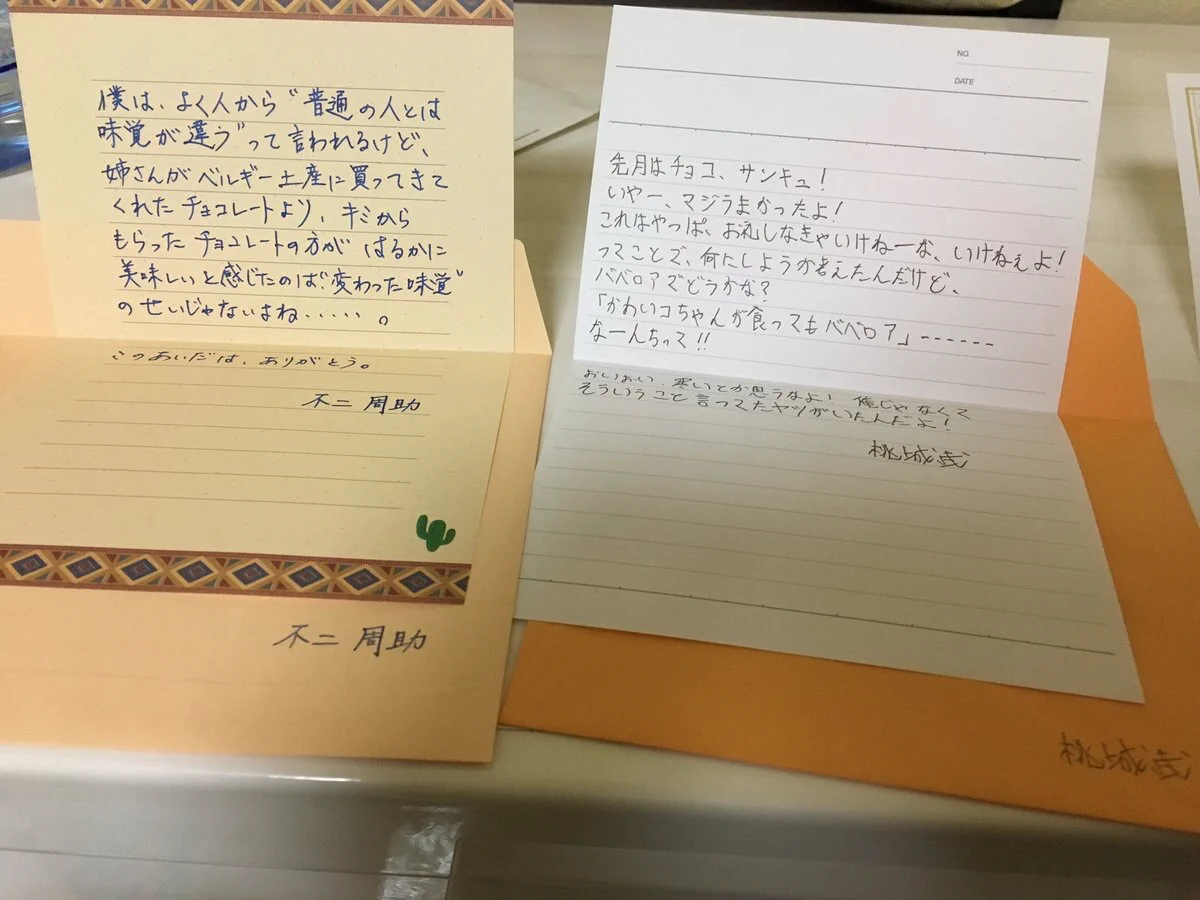 僕は、よく人から“普通の人とは
味覚が違う”って言われるけど、
姉さんがベルギー土産に買ってきて
くれたチョコレートより、キミから
もらったチョコレートの方がはるかに
美味しいと感じたのは“変わった味覚”
のせいじゃないよね・・・・・。
このあいだは、ありがとう。
不二 周助
不二 周助
NO.
DATE
先月はチョコ、サンキュ!
いやー、マジうまかったよ!
これはやっぱ、お礼しなきゃいけねーな、いけねぇよ!
ってことで、何にしようか考えたんだけど、
ババロアでどうかな?
「かわいコちゃんが食ってもババロア」------
なーんちって!!
おいおい、寒いとか思うなよ! 俺じゃなくて
そういうこと言ってたヤツがいたんだよ!
桃城武
桃城武